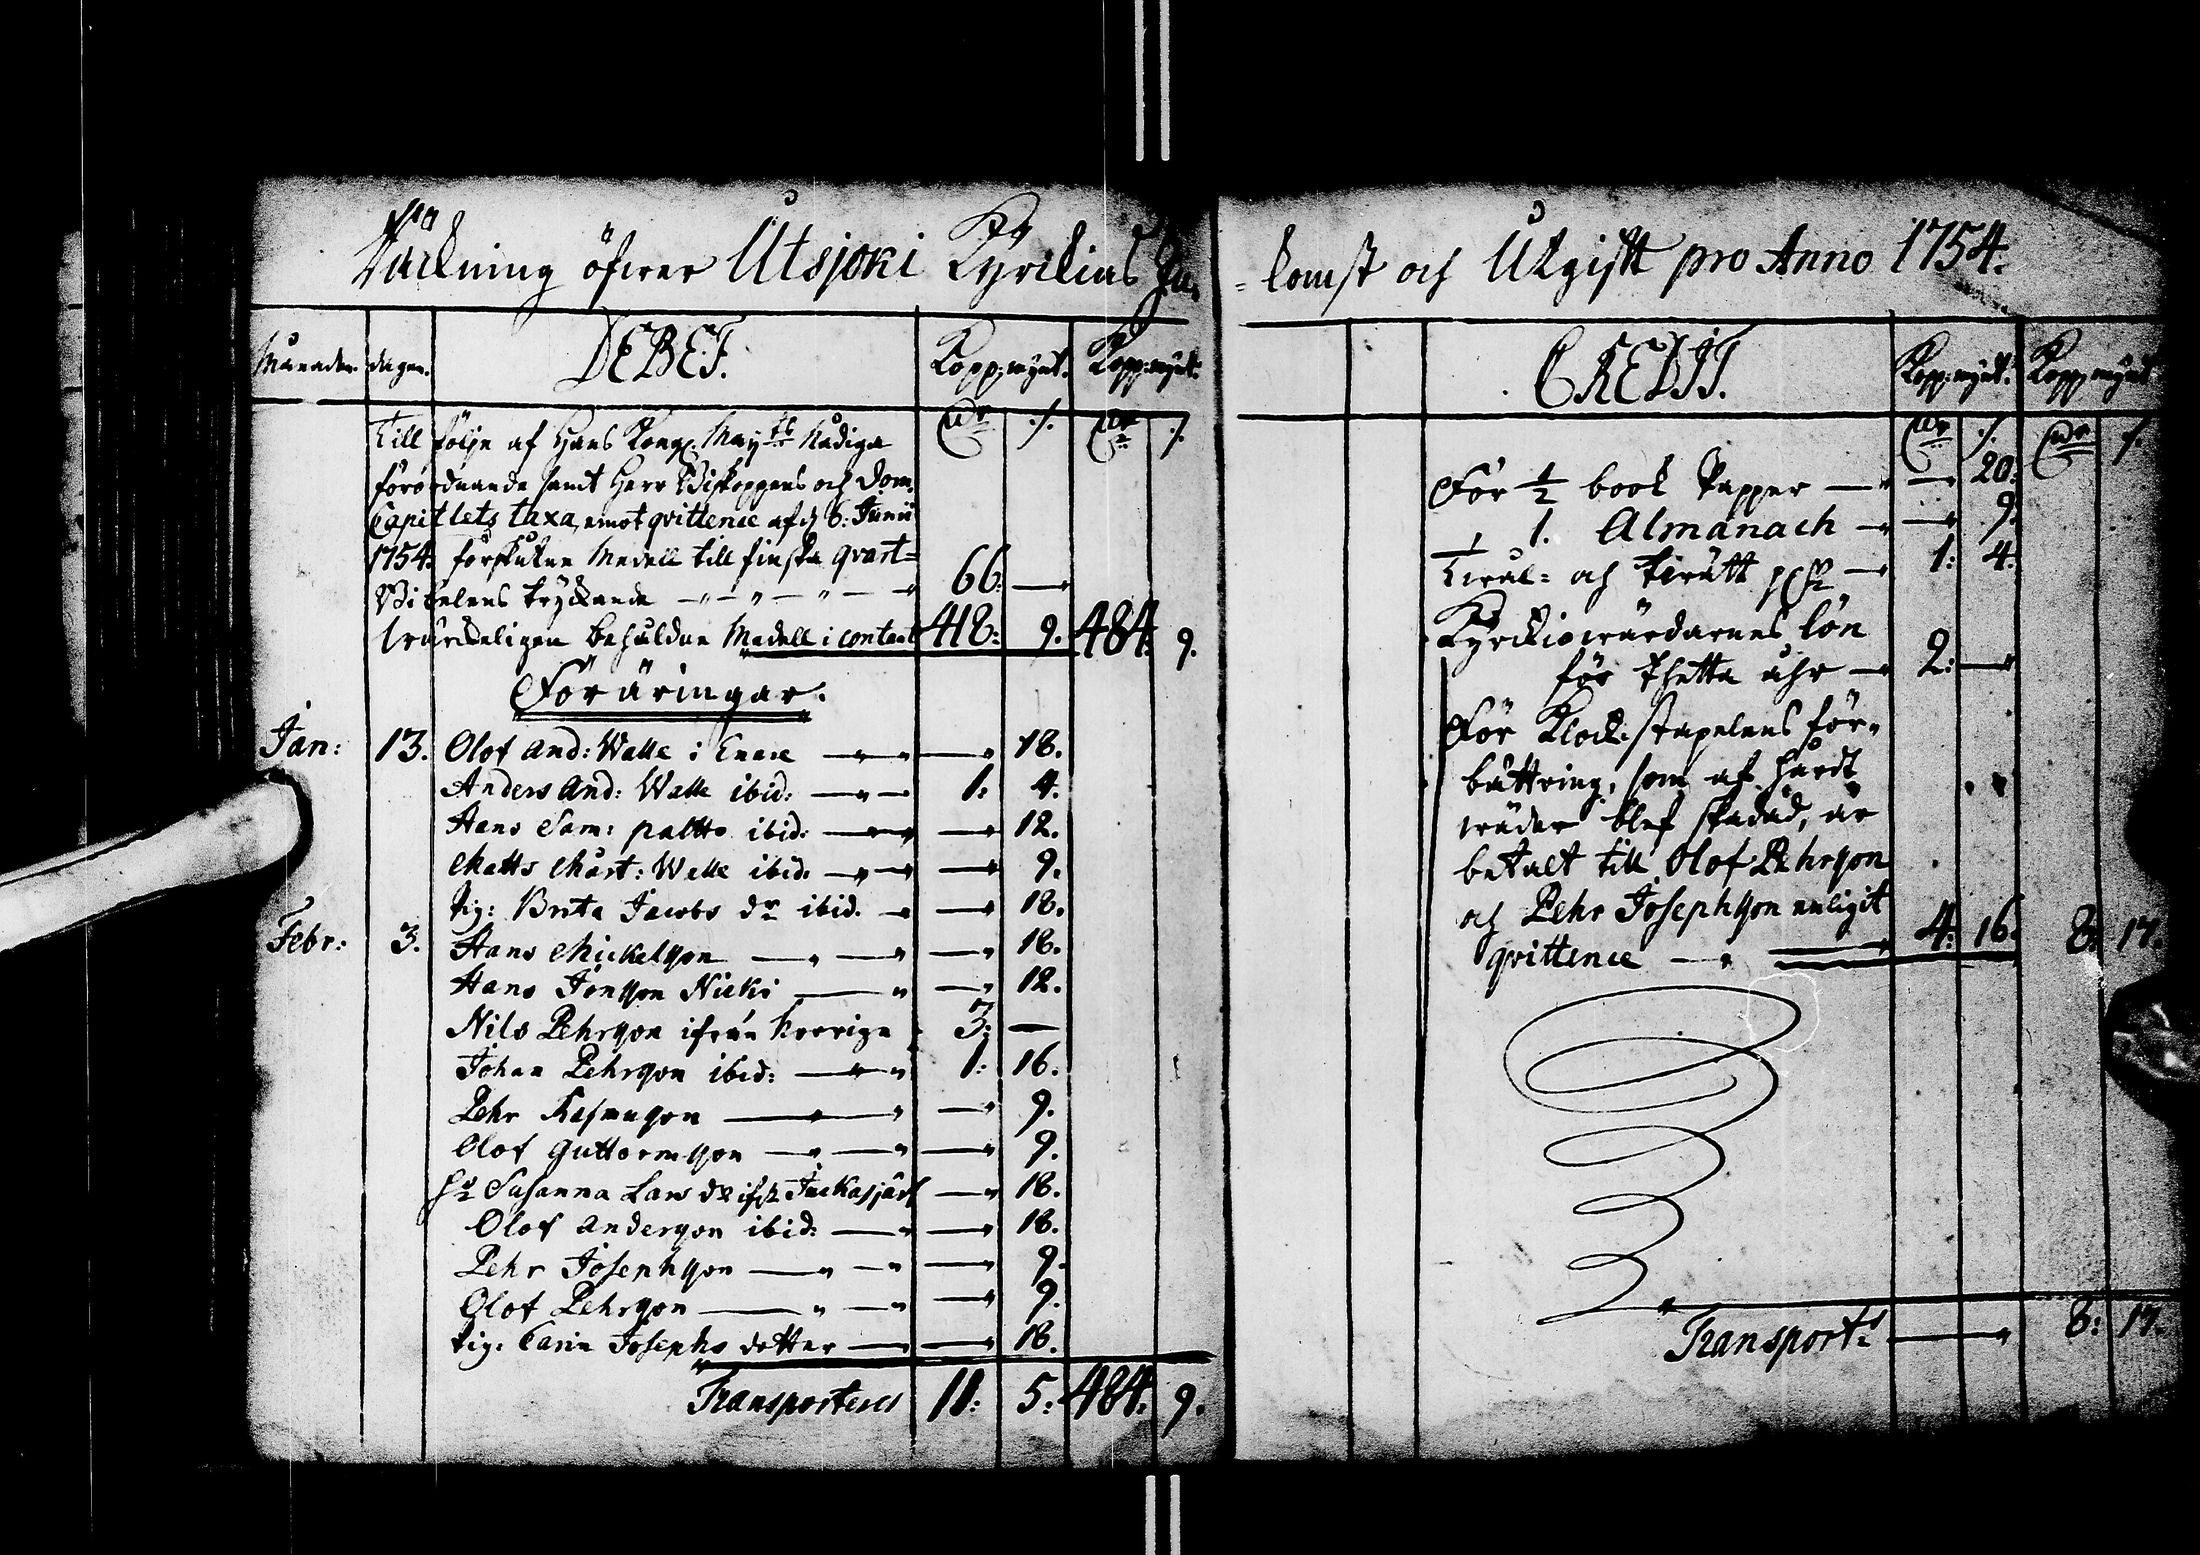 Räckning öfwer Utsjoki Kyrckias In-
Månader. dagar. DEBET. Kopp:mynt. Kopp:mynt.
Till följe af Hans Kongl. May:tts Nådiga Cur ./. Cur ./.
förordnande samt Herr Biskoppens och Dom-
Capitlets taxa, emot qvittence af d. 6: Junii
1754. förskutne Medell till finska qvart-
Bibelens tryckande 66: —
Wärckeligen behåldne Medell i contant 418: 9. 484. 9.
Föräringar.
Jan: 13. Olof And: Walle i Enare — 18.
Anders And: Walle ibid: 1: 4.
Hans Sam: paltto ibid: — 12.
Matts Mårt: Walle ibid. — 9.
Pig: Brita Jacobs dr ibid. — 18.
Febr: 3. Hans Mickelsson — 18.
Hans Jonsson Nicki — 12.
Nils Pehrsson ifrån 3: —
Johan Pehrsson ibid: 1: 16.
Pehr Rasmusson — 9.
Olof Guttormsson — 9.
Susanna Lars Juckasjärf — 18.
Olof Andersson ibid: — 18.
Pehr Josephsson — 9.
Olof Pehrsson — 9.
Pig: Carin Josephs dotter — 18.
Transporteres 11: 5: 484. 9.
-komst och Utgift pro Anno 1754.
CREDIT. Kopp:mynt. Kopp:mynt
Cur ./. Cur ./.
För 1/2 book Papper — 20:
1. Almanach — 9.
och 1: 4.
Kyrckiowärdarnes lön
för thetta åhr 2: —
För Klock-stapelens för-
bättring, som af hårdt
wäder blef skadad, är
betalt till Olof Pehrsson
och Pehr Josephsson enligit
qvittence 4: 16. 8: 17.
Transport 8: 17.